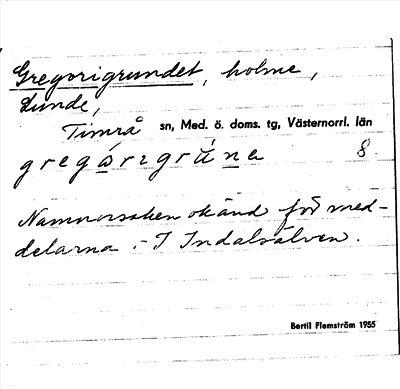 Gregorigrundet, holme,
Lunde,
Timrå sn, Med. ö. doms. tg, Västernorrl. län
8
Namnorsaken okänd för med-
delarna. - I Indalsälven.
Bertil Flemström 1955